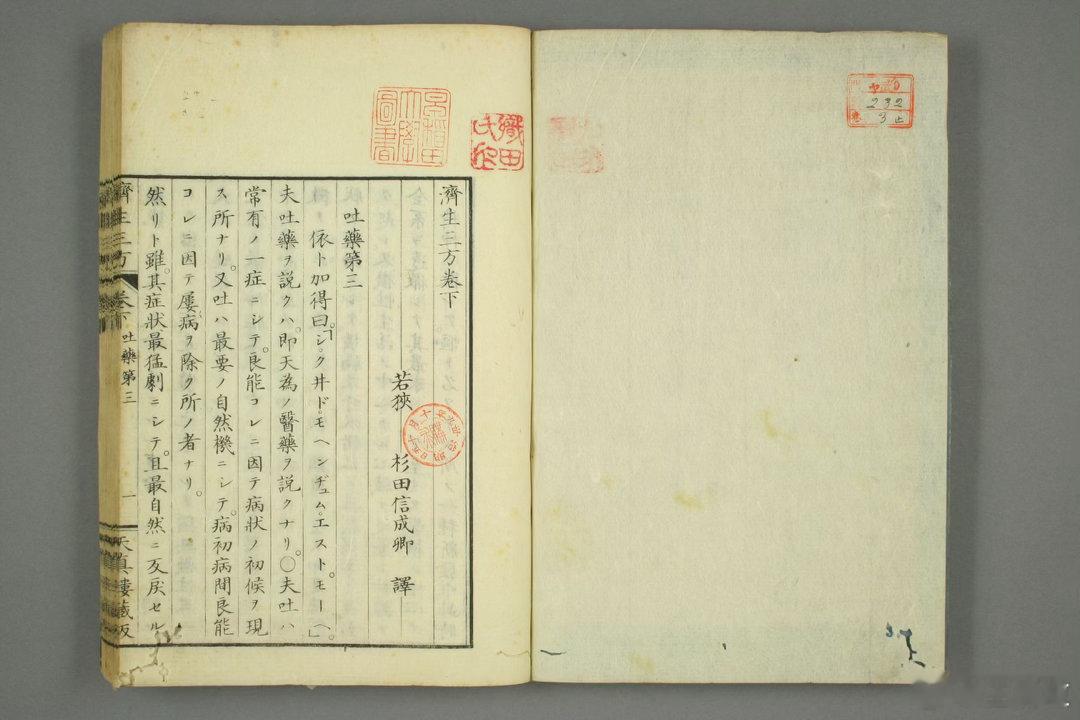 濟生三方卷下
若狹 杉田信成卿 譯
吐藥第三
依ト加得曰「シ゚クヰドモヘンヂュム。エスト。モーヘ。」
夫吐藥ヲ說クハ。即天為ノ醫藥ヲ說クナリ。〇夫吐ハ
常有ノ一症ニシテ。良能コレニ因テ病狀ノ初候ヲ現
ス所ナリ。又吐ハ最要ノ自然機ニシテ。病初病間良能
コレニ因テ屢病ヲ除ク所ノ者ナリ。
然リト雖。其症狀最猛劇ニシテ。且最自然ニ反戾セル
濟生三方 卷下 吐藥第三 一 天真樓藏版
早稻田大學圖書
織田氏
232
3止